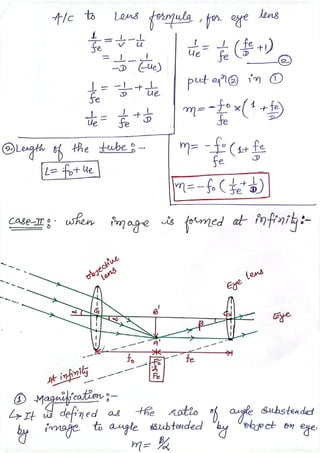 A/c to Lens formula, for eye lens
1/fe = 1/v - 1/u
= 1/-D - 1/(-ue)
1/fe = -1/D + 1/ue
1/ue = 1/fe + 1/D
② Length of the tube :-
L = fo + ue
1/ue = 1/fe (fe/D + 1)
②
put eqn ② in ①
m = -fo/fe × (1 + fe/D)
m = -fo/fe (1 + fe/D)
m = -fo (1/fe + 1/D)
Case-II :- When image is formed at infinity :-
objective lens
Eye lens
α
G
α
B'
A'
β
Eye
fo
fe
At infinity
Fo
&
Fe
① Magnification :-
↳ It is defined as the ratio of angle substended
by image to angle subtended by object on eye.
m = β/α